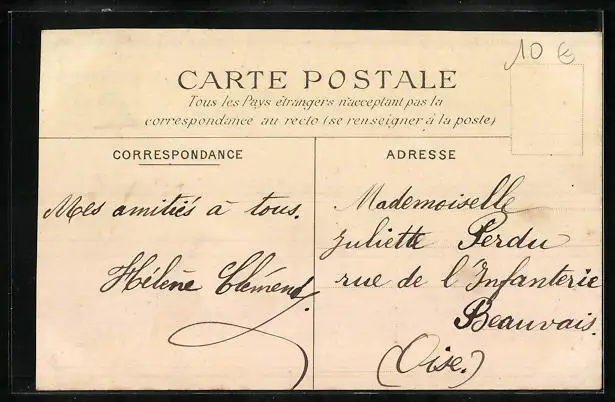 10 €
CARTE POSTALE
Tous les Pays étrangers n'acceptant pas la
correspondance au recto (se renseigner à la poste)
CORRESPONDANCE
Mes amitiés à tous.
Hélène Clément.
ADRESSE
Mademoiselle
Juliette Perdu
rue de l'Infanterie
Beauvais.
(Oise.)